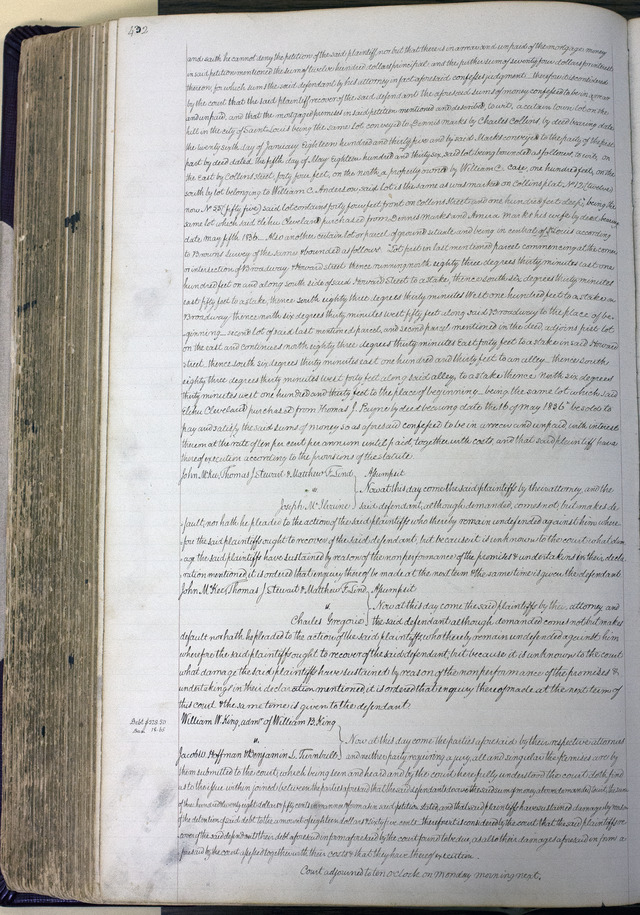 432
and saith he cannot deny the petition of the said plaintiff nor but that there is in arrear and unpaid of the mortgage money
in said petition mentioned the sum of twelve hundred dollars principal and the further sum of seventy four dollars interest
thereon for which sums the said defendant by his attorney in fact aforesaid confesses judgment. Therefore it is considered
by the court that the said plaintiff recover of the said defendant the aforesaid sums of money confessed to be in arrear
and unpaid, and that the mortgaged premises in said petition mentioned and described, to wit, a certain town lot on the
hill in the city of Saint Louis being the same lot conveyed to Dennis Marks by Charles Collens by deed bearing date
the twenty sixth day of January Eighteen hundred and thirty five and by said Marks conveyed to the party of the first
part by deed dated the fifth day of May Eighteen hundred and thirty six, said lot being bounded as follows to wit, on
the East by Collens street, forty four feet, on the north, a property owned by William C. Case, one hundred feet, on the
south by lot belonging to William C. Anderson, said lot is the same as was marked on Collens plat, No 12 (twelve)
now No 55 (fifty five) said lot contains forty four feet front on Collens Street and one hundred feet deep, being the
same lot which said Elihu Cleveland purchased from Dennis Marks and Amira Marks his wife by deed bearing
date May fifth 1836. Also another certain lot or parcel of ground situate and being in central St Louis according
to Browns survey of the same & bounded as follows. "Lot first in last mentioned parcel commencing at the corner
or intersection of Broadway & Howard street thence running north eighty three degrees thirty minutes east one
hundred feet on and along south side of said Howard Street to a stake, thence south six degrees thirty minutes
east fifty feet to a stake, thence south eighty three degrees thirty minutes West one hundred feet to a stake on
Broadway thence north six degrees thirty minutes west fifty feet along said Broadway to the place of be-
ginning, second lot of said last mentioned parcel, and second parcel mentioned in the deed, adjoins first lot
on the east and continues north eighty three degrees thirty minutes East forty feet to a stake in said Howard
street, thence south six degrees thirty minutes east one hundred and thirty feet to an alley, thence south
eighty three degrees thirty minutes west forty feet along said alley, to a stake thence north six degrees
thirty minutes west one hundred and thirty feet to the place of beginning, being the same lot which said
Elihu Cleveland purchased from Thomas J. Payne by deed bearing date the 18th of May 1836" be sold to
pay and satisfy the said sums of money so as aforesaid confessed to be in arrear and unpaid with interest
thereon at the rate of ten per cent per annum until paid, together with costs, and that said plaintiff have
thereof execution according to the provisions of the statute.
John McKee, Thomas J Stewart & Matthew F. Lind } Assumpsit
vs } Now at this day come the said plaintiffs by their attorney, and the
Joseph McIlvaine } said defendant, although demanded, comes not, but makes de-
fault, nor hath he pleaded to the action of the said plaintiffs who thereby remain undefended against him where-
fore the said plaintiffs ought to recover of the said defendant, but because it is unknown to the court what dam-
age the said plaintiffs have sustained by reason of the nonperformance of the premises & undertakings in their decla-
ration mentioned, it is ordered that enquiry thereof be made at the next term & the same time is given the defendant.
John McKee, Thomas J Stewart & Matthew F. Lind } Assumpsit
vs } Now at this day come the said plaintiffs by their attorney and
Charles Gregoire } the said defendant although demanded comes not but makes
default nor hath he pleaded to the action of the said plaintiffs, who thereby remain undefended against him
wherefore the said plaintiffs ought to recover of the said defendant; but because it is unknown to the court
what damage the said plaintiffs have sustained by reason of the nonperformance of the promises &
undertakings in their declaration mentioned, it is ordered that enquiry thereof made at the next term of
this court & the same time is given to the defendant.
William W. King, admr of William B. King
Debt $228.50
Dam 18.65
vs } Now at this day come the parties aforesaid by their respective attornies
Jacobus Hoffman & Benjamin L. Turnbull } and neither party requiring a jury, all and singular the premises are by
them submitted to the court, which being seen and heard and by the court here fully understood the court doth find
as to the issue within joined between the parties aforesaid that the said defendants do owe the said sum of money above demanded the sum
of two hundred twenty eight dollars & fifty cents in said petition stated, and that said plaintiff have sustained damage by reason
of the detention of said debt to the amount of eighteen dollars & sixty five cents. Therefore it is considered by the court that the said plaintiff re-
cover of the said defendants their debt aforesaid in form aforesaid by the court found to be due, as also their damages aforesaid in form a-
foresaid by the court assessed together with their costs & that they have thereof execution.
Court adjourned to ten o'clock on Monday morning next.